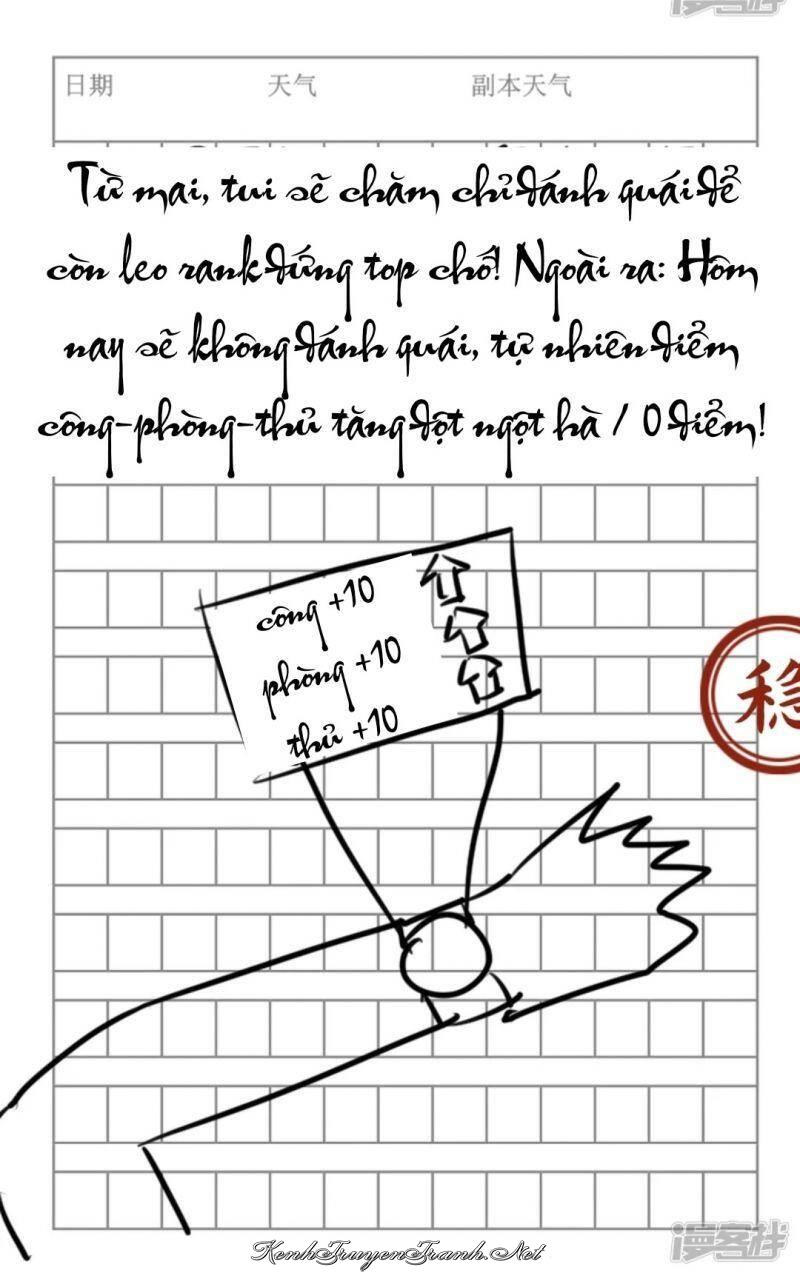 漫客栈
日期 天气 副本天气
Từ mai, tui sẽ chăm chỉ đánh quái để
còn leo rank đứng top chớ! Ngoài ra: Hôm
nay sẽ không đánh quái, tự nhiên điểm
công-phòng-thủ tăng đột ngột hà / 0 điểm!
công +10
phòng +10
thủ +10
稳
漫客栈
KenhTruyenTranh.Net